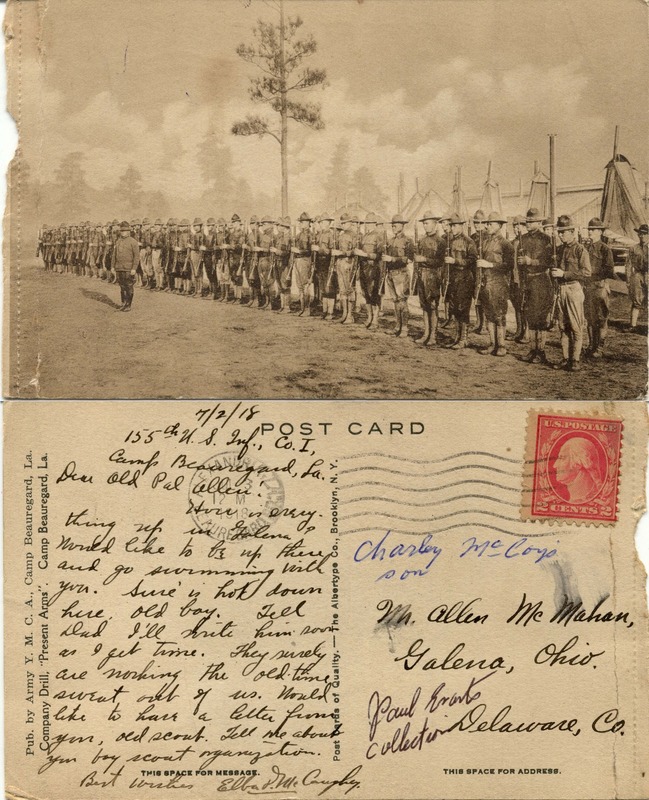 7/2/18
POST CARD
155th U.S. Inf., Co. I,
Camp Beauregard, La.
Dear Old Pal Allen:
How is every-
thing up in Galena?
Would like to be up there
and go swimming with
you. Sure is hot down
here, old boy. Tell
Dad I'll write him soon
as I get time. They surely
are working the old time
sweat out of us. Would
like to have a letter from
you, old scout. Tell me about
your boy scout organization.
Best Wishes
Pub. by Army Y. M. C. A., Camp Beauregard, La.
Company Drill, "Present Arms". Camp Beauregard, La.
Post Cards of Quality. — The Albertype Co., Brooklyn, N. Y.
U.S. POSTAGE
2 CENTS 2
Charley McCoy's
son
Mr. Allen McMahan,
Galena, Ohio.
Delaware, Co.
Paul Evarts
Collection
THIS SPACE FOR MESSAGE.
THIS SPACE FOR ADDRESS.